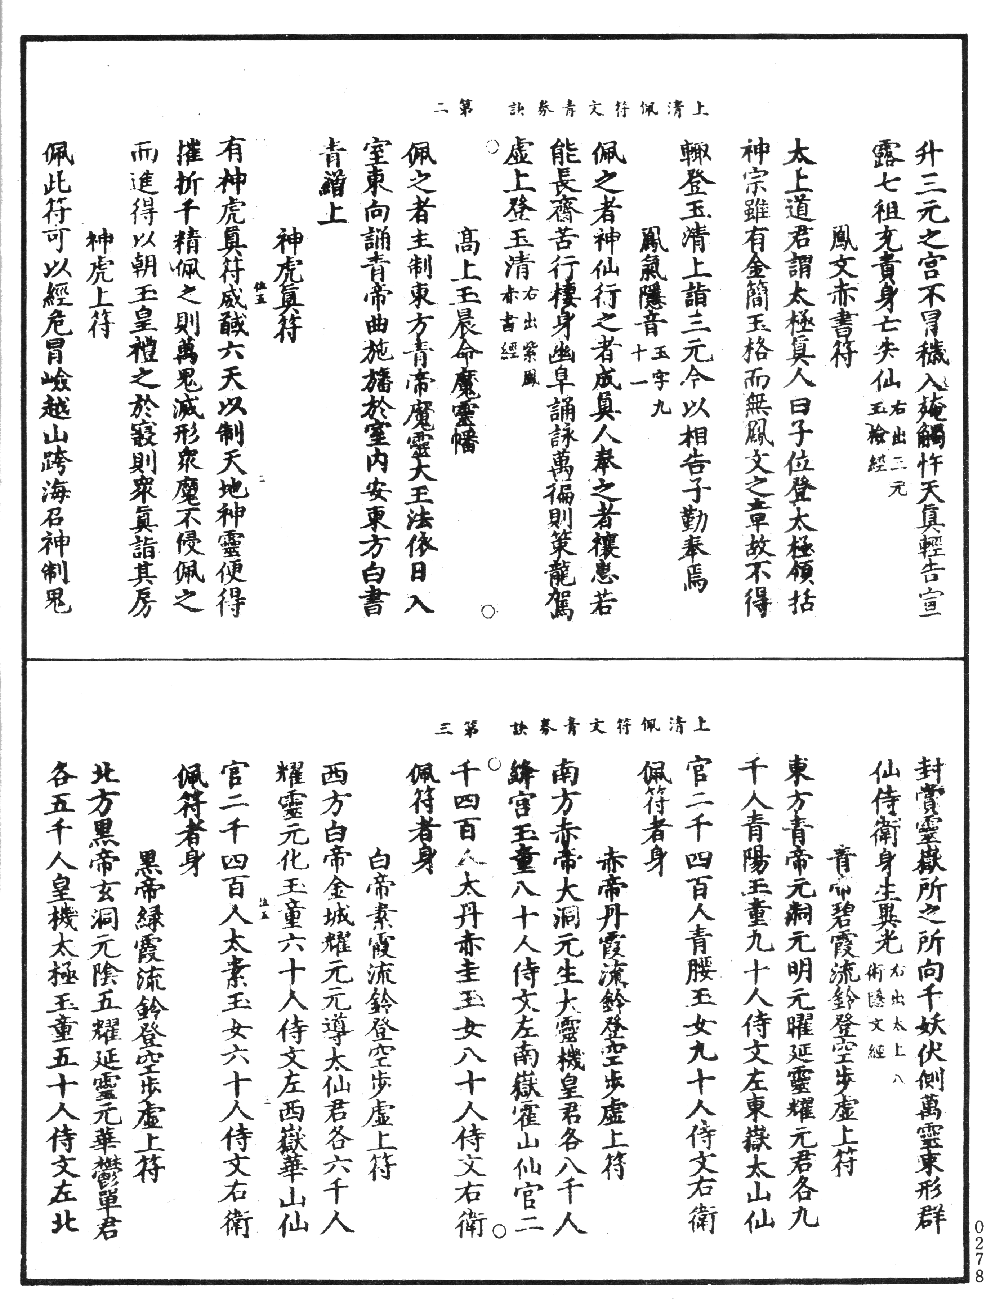 上清佩符文青券訣　第二
升三元之宮不冒穢入殗觸忤天眞輕告宣
露七祖充責身亡失仙右出三元玉檢經
鳳文赤書符
太上道君謂太極眞人曰子位登太極領括
神宗雖有金簡玉格而無鳳文之章故不得
輙登玉清上詣三元今以相告子勤奉焉
鳳氣隱音玉字九十一
佩之者神仙行之者成眞人奉之者禳患若
能長齋苦行棲身幽阜誦詠萬徧則策龍駕
虛上登玉清右出紫鳳赤書經
高上玉晨命魔靈幡
佩之者主制東方青帝魔靈大王法依日入
室東向誦青帝曲施旛於室內安東方白書
青繒上
神虎眞符
有神虎眞符威馘六天以制天地神靈便得
摧折千精佩之則萬鬼滅形衆魔不侵佩之
而進得以朝玉皇禮之於寢則衆眞詣其房
神虎上符
佩此符可以經危冒嶮越山跨海召神制鬼
上清佩符文青券訣　第三
封賞靈嶽所之所向千妖伏側萬靈束形群
仙侍衛身生異光右出太上八術隱文經
青帝碧霞流鈴登空步虛上符
東方青帝元洞元明元曜延靈耀元君各九
千人青陽玉童九十人侍文左東嶽太山仙
官二千四百人青腰玉女九十人侍文右衛
佩符者身
赤帝丹霞流鈴登空步虛上符
南方赤帝大洞元生大靈機皇君各八千人
絳宮玉童八十人侍文左南嶽霍山仙官二
千四百人太丹赤圭玉女八十人侍文右衛
佩符者身
白帝素霞流鈴登空步虛上符
西方白帝金城耀元元導太仙君各六千人
耀靈元化玉童六十人侍文左西嶽華山仙
官二千四百人太素玉女六十人侍文右衛
佩符者身
黑帝綠霞流鈴登空步虛上符
北方黑帝玄洞元陰五耀延靈元華鬱單君
各五千人皇機太極玉童五十人侍文左北
0278